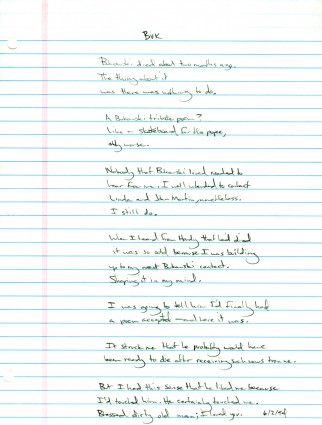 BUK
Bukowski died about two months ago.
The thing about it
was there was nothing to do.
A Bukowski tribute poem?
Like a skateboard for the pope,
only worse.
Nobody that Bukowski loved needed to
hear from me. I well intended to contact
Linda and John Martin, nonetheless.
I still do.
When I heard from Hardy that he'd died
it was so odd because I was building
up to my next Bukowski contact.
Shaping it in my mind.
I was going to tell him I'd finally had
a poem accepted — and here it was.
It struck me that he probably would have
been ready to die after receiving such news from me.
But I had this sense that he liked me because
I'd touched him. He certainly touched me.
Blessed dirty old man; I loved you. 6/2/94